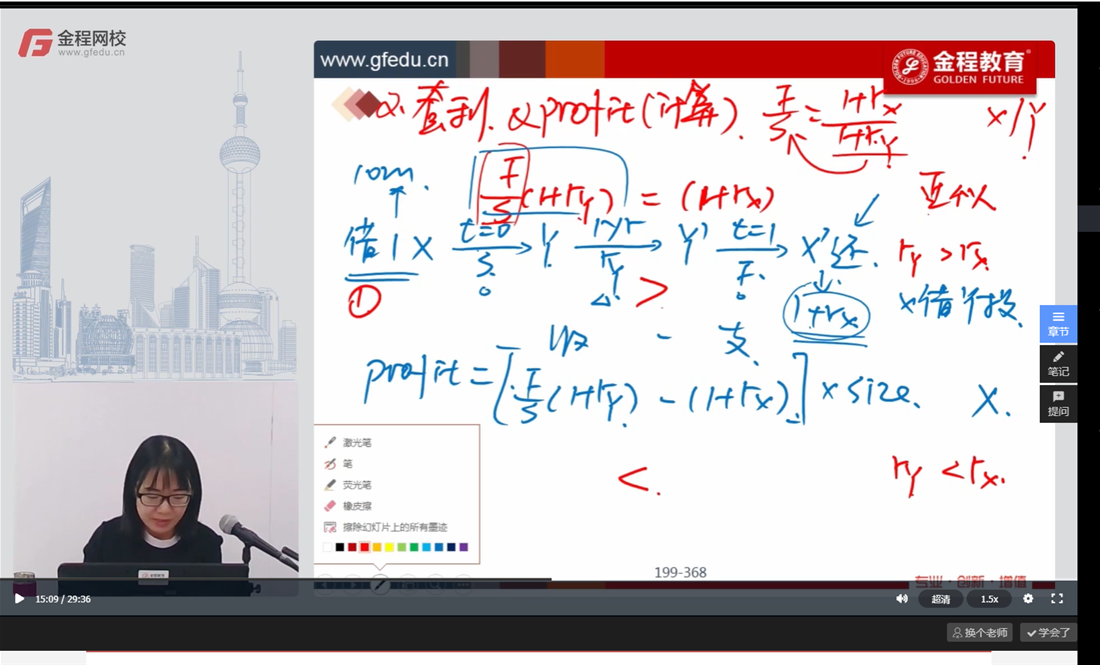 金程网校
www.gfedu.cn
www.gfedu.cn
金程教育
GOLDEN FUTURE
2. 套利 & profit (计算). F/S = 1+rx/1+ry x/y
10m.
F/S (1+ry) = (1+rx)
近似
借1X t=0 S. Y 1yr ry Y' t=1 F. X' 还.
ry > rx.
① 0 △ > 0 1+rx x借y投.
收 - 支
profit = [F/S (1+ry) - (1+rx)] x size. X.
激光笔
笔
荧光笔
橡皮擦
擦除幻灯片上的所有墨迹
< .
ry < rx.
199-368
专业·创新·增值
章节
笔记
提问
15:09 / 29:36
超清
1.5x
换个老师
学会了